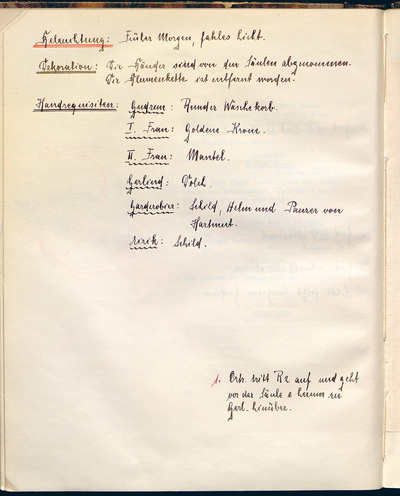 Beleuchtung: Früher Morgen, fahles Licht.
Dekoration: Die Bänder sind von den Säulen abgenommen.
Die Blumenkette ist entfernt worden.
Handrequisiten: Gudrun: Runder Wäschekorb.
I. Frau: Goldene Krone.
II. Frau: Mantel.
Gerlind: Dolch.
Garderobier: Schild, Helm und Panzer von
Hartmut.
Schild.
1. Ortr. tritt R2 auf und geht
vor der Säule e herum zu
Gerl. hinüber.